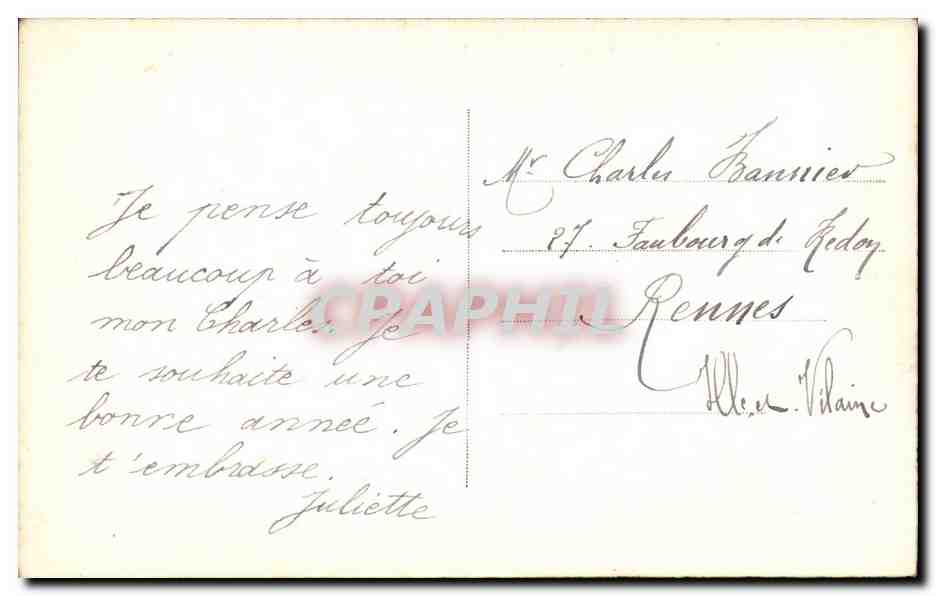 Je pense toujours
beaucoup à toi
mon Charles. Je
te souhaite une
bonne année. Je
t'embrasse.
Juliette
Mr Charles Bannier
27. Faubourg de Redon
Rennes
Ille-et-Vilaine
CPAPHIL